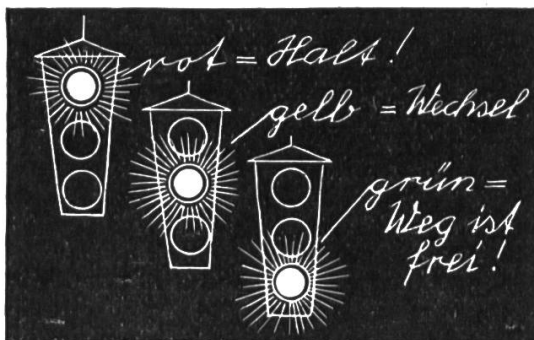 rot = Halt!
gelb = Wechsel
grün =
Weg ist
frei!